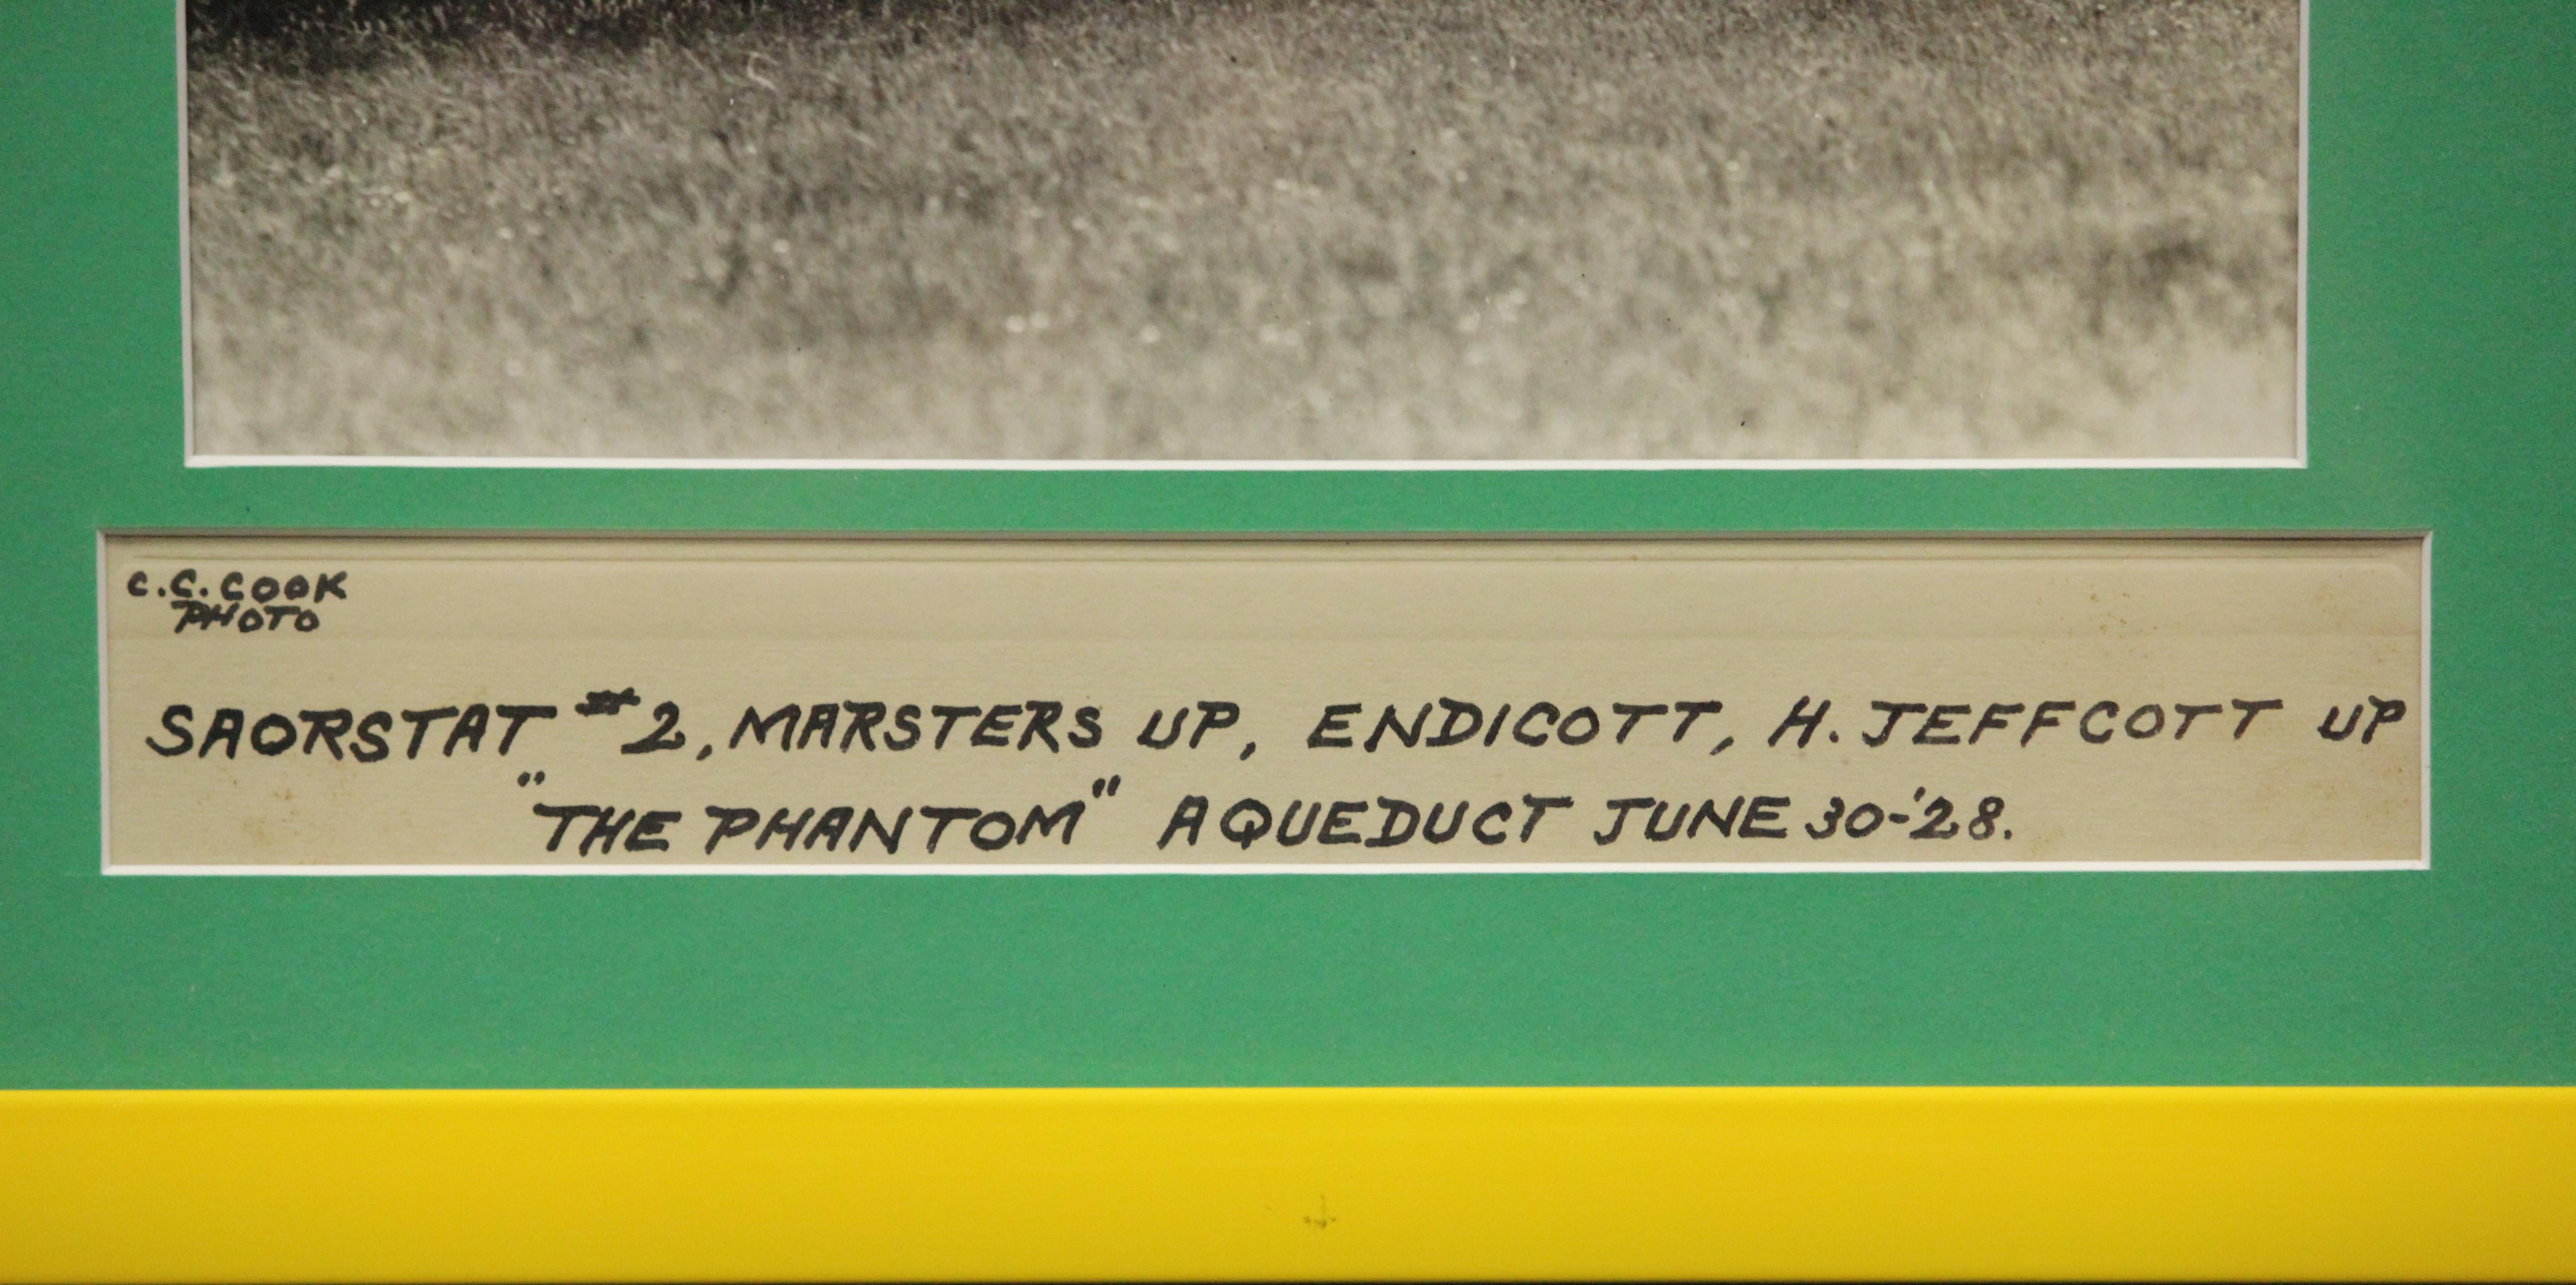 C.C. COOK
PHOTO
SAORSTAT #2, MARSTERS UP, ENDICOTT, H. JEFFCOTT UP
"THE PHANTOM" AQUEDUCT JUNE 30-'28.